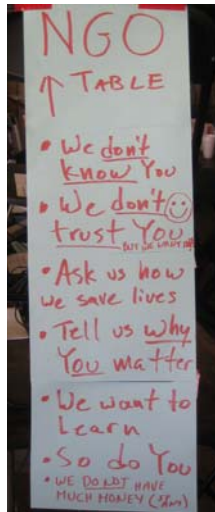 NGO
↑ TABLE
• We don't
know You
• We don't
trust You
BUT WE WANT TO
• Ask us how
we save lives
• Tell us why
You matter
• We want to
Learn
• So do You
• WE DO NOT HAVE
MUCH MONEY